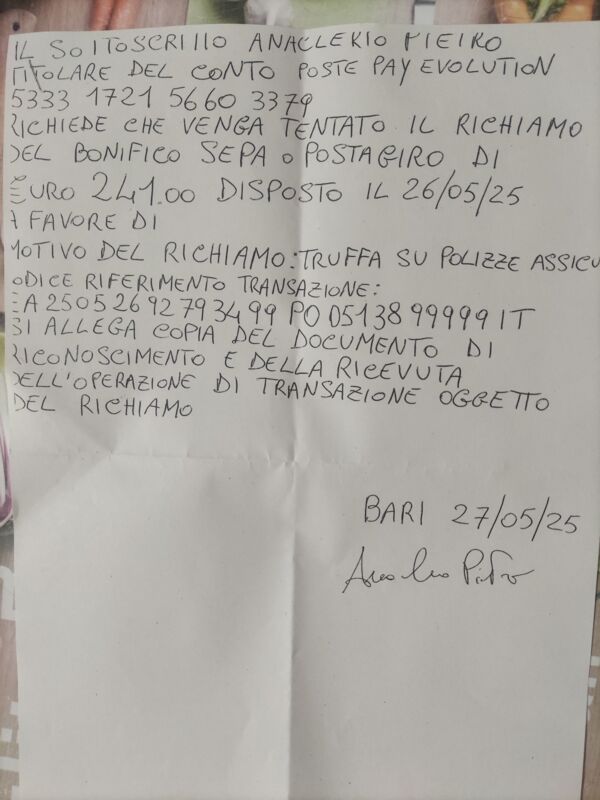 IL SOTTOSCRITTO ANACLERIO PIETRO
TITOLARE DEL CONTO POSTE PAY EVOLUTION
5333 1721 5660 3379
RICHIEDE CHE VENGA TENTATO IL RICHIAMO
DEL BONIFICO SEPA O POSTAGIRO DI
EURO 241.00 DISPOSTO IL 26/05/25
A FAVORE DI
MOTIVO DEL RICHIAMO: TRUFFA SU POLIZZE ASSICU
ODICE RIFERIMENTO TRANSAZIONE:
EA 2505 26 92 79 34 99 PO 05138 99999 IT
SI ALLEGA COPIA DEL DOCUMENTO DI
RICONOSCIMENTO E DELLA RICEVUTA
DELL'OPERAZIONE DI TRANSAZIONE OGGETTO
DEL RICHIAMO
BARI 27/05/25